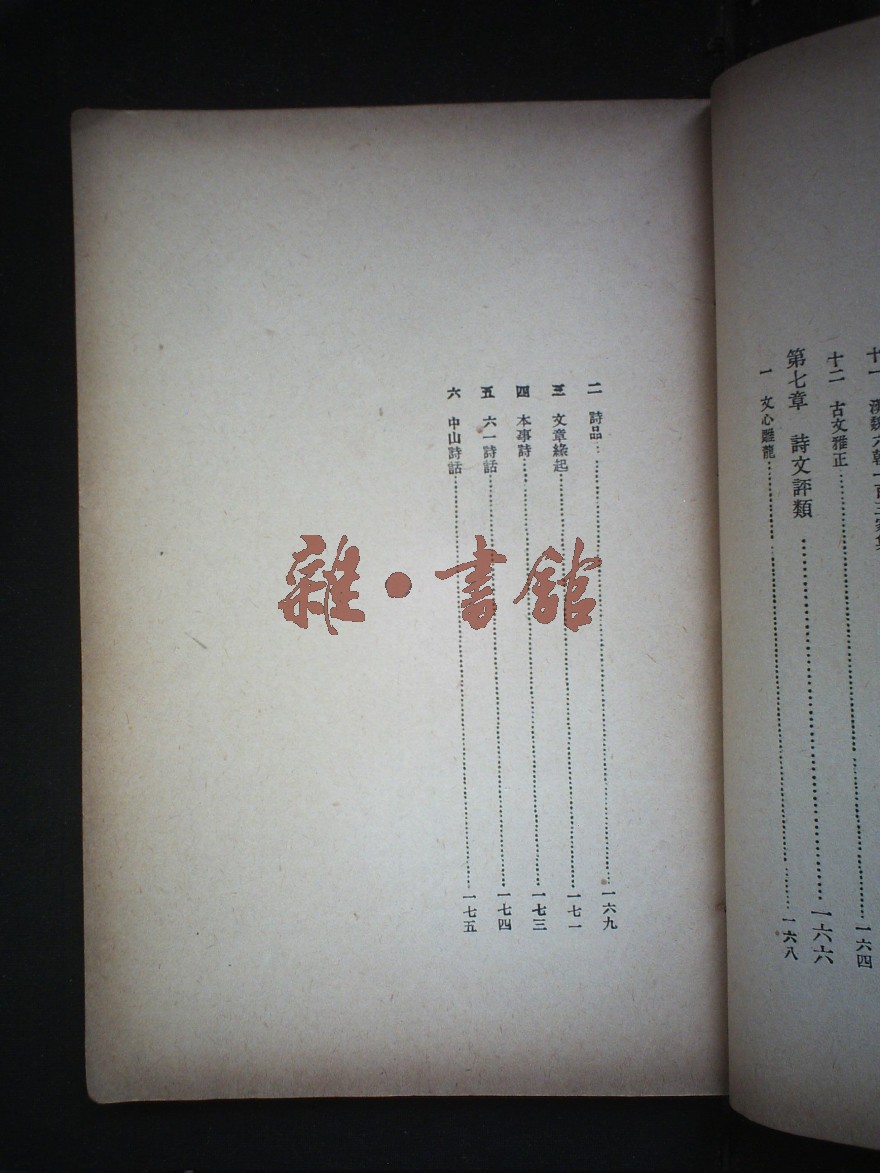 十一　漢魏六朝一百三家集
十二　古文雅正……一六四
第七章　詩文評類……一六六
一　文心雕龍……一六八
二　詩品……一六九
三　文章緣起……一七一
四　本事詩……一七三
五　六一詩話……一七四
六　中山詩話……一七五
雜·書館